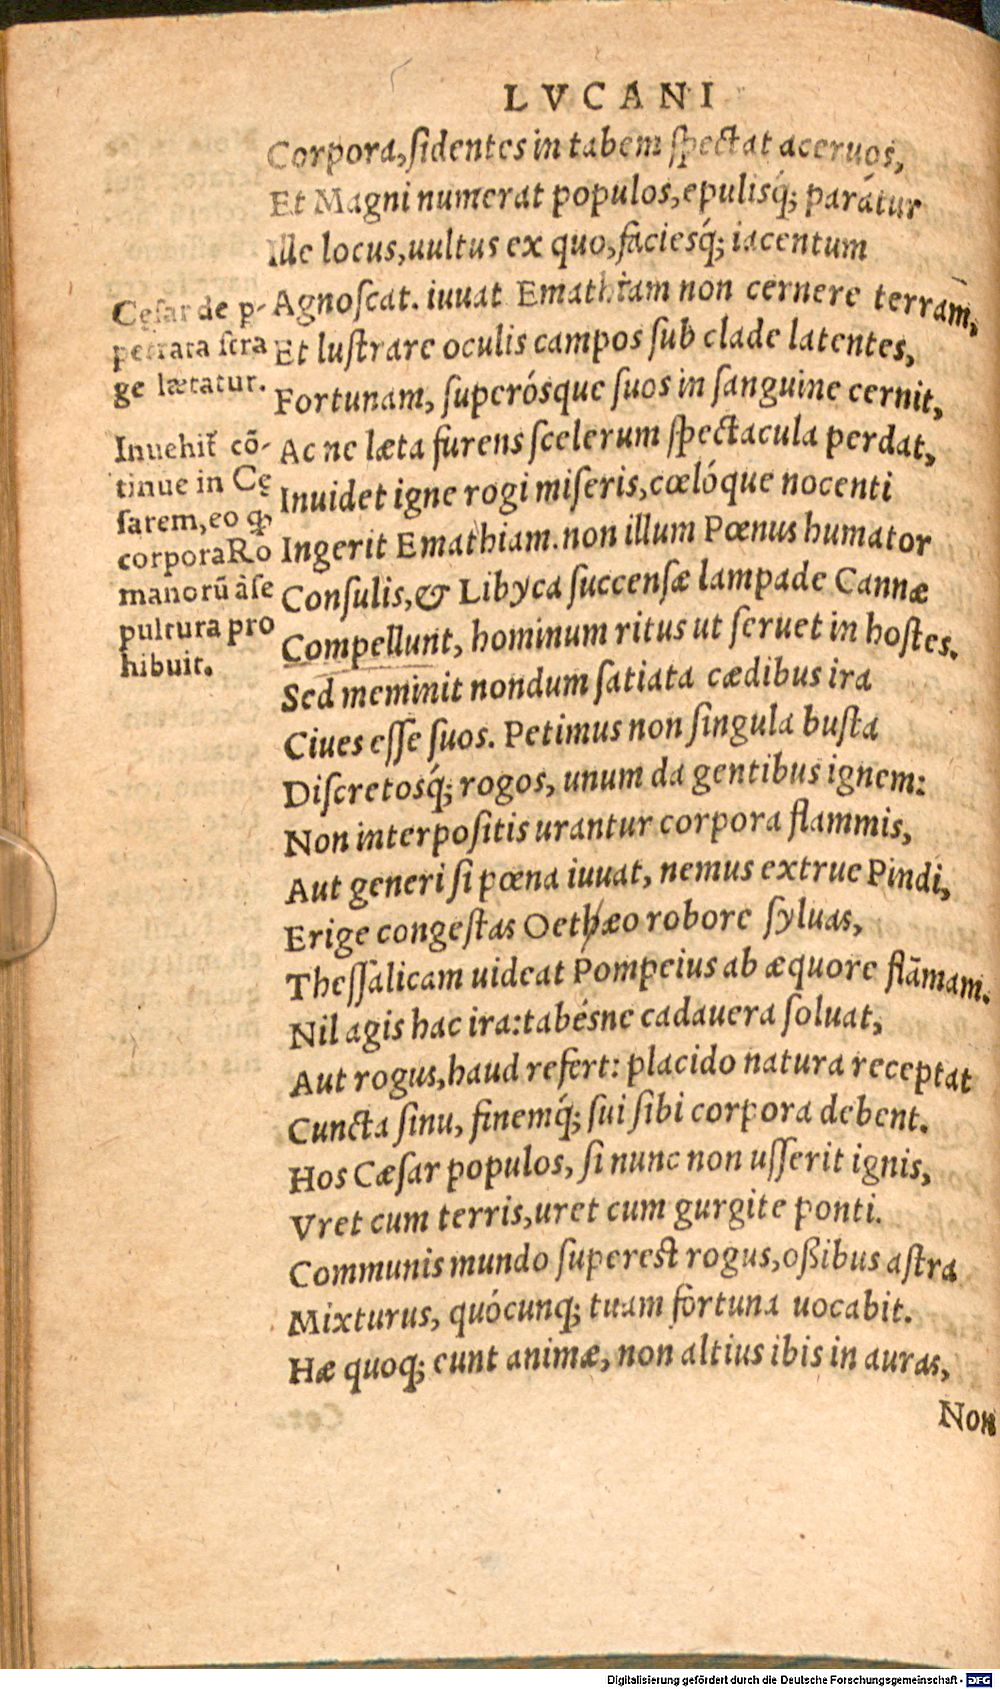 LVCANI
Corpora,ſidentes in tabem ſpectat aceruos,
Et Magni numerat populos,epulisq́; parátur
Ille locus,uultus ex quo,faciesq́; iacentum
Agnoſcat. iuuat Emathiam non cernere terram̄,
Et luſtrare oculis campos ſub clade latentes,
Fortunam, ſuperósque ſuos in ſanguine cernit,
Ac ne læta furens ſcelerum ſpectacula perdat,
Inuidet igne rogi miſeris,cœlóque nocenti
Ingerit Emathiam.non illum Pœnus humator
Conſulis,& Libyca ſuccenſæ lampade Cannæ
Compellunt, hominum ritus ut ſeruet in hoſtes.
Sed meminit nondum ſatiata cædibus ira
Ciues eſſe ſuos. Petimus non ſingula buſta
Diſcretosq́; rogos, unum da gentibus ignem:
Non interpoſitis urantur corpora flammis,
Aut generi ſi pœna iuuat, nemus extrue Pindi,
Erige congeſtas Oethæo robore ſyluas,
Theſſalicam uideat Pompeius ab æquore flāmam.
Nil agis hac ira:tabésne cadauera ſoluat,
Aut rogus,haud refert: placido natura receptat
Cuncta ſinu, finemq́; ſui ſibi corpora debent.
Hos Cæſar populos, ſi nunc non uſſerit ignis,
Vret cum terris,uret cum gurgite ponti.
Communis mundo ſupereſt rogus,oßibus aſtra
Mixturus, quócunq; tuam fortuna uocabit.
Hæ quoq; eunt animæ, non altius ibis in auras,
Non
Cęſar de ꝑ-
petrata ſtra
ge lætatur.
Inuehit̃ cõ-
tinue in Cę
ſarem,eo ꝙ
corporaRo
manorũ àſe
pultura pro
hibuit.
Digitalisierung gefördert durch die Deutsche Forschungsgemeinschaft - DFG